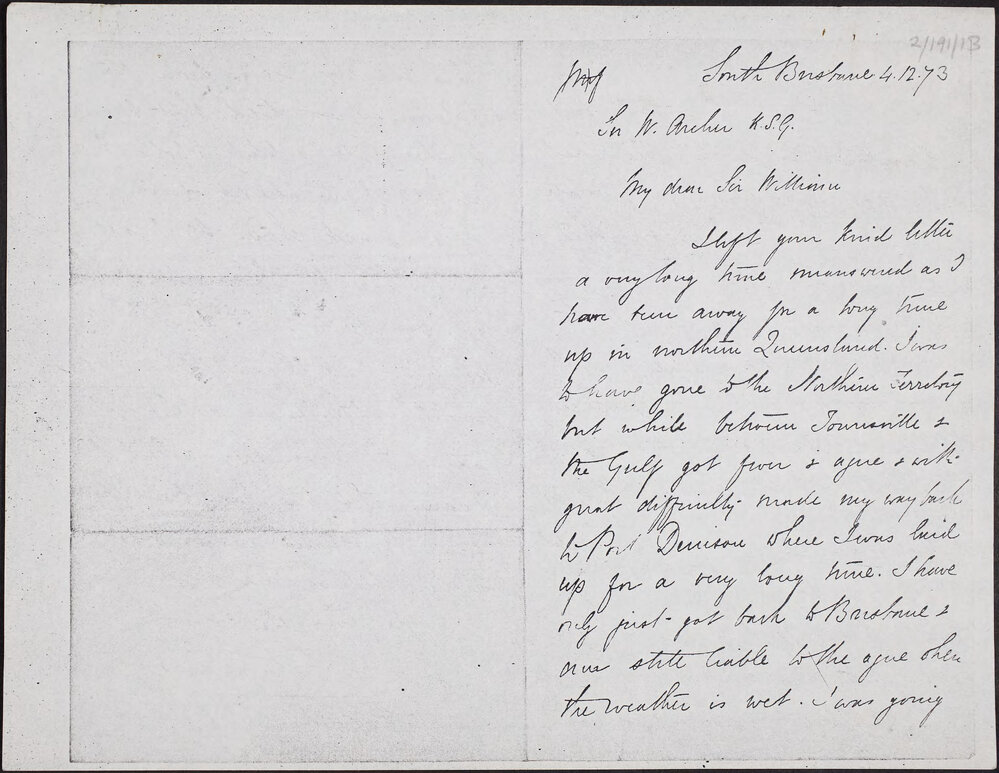 2/191/1B
South Brisbane 4.12.73
Sir W. Archer K.S.G.
My dear Sir William
I left your kind letter
a very long time unanswered as I
have been away for a long time
up in northern Queensland. I was
to have gone to the Northern Territory
but while between Townsville &
the Gulf got fever & ague & with
great difficulty made my way back
to Port Denison where I was laid
up for a very long time. I have
only just got back to Brisbane &
am still liable to the ague when
the weather is wet. I was going